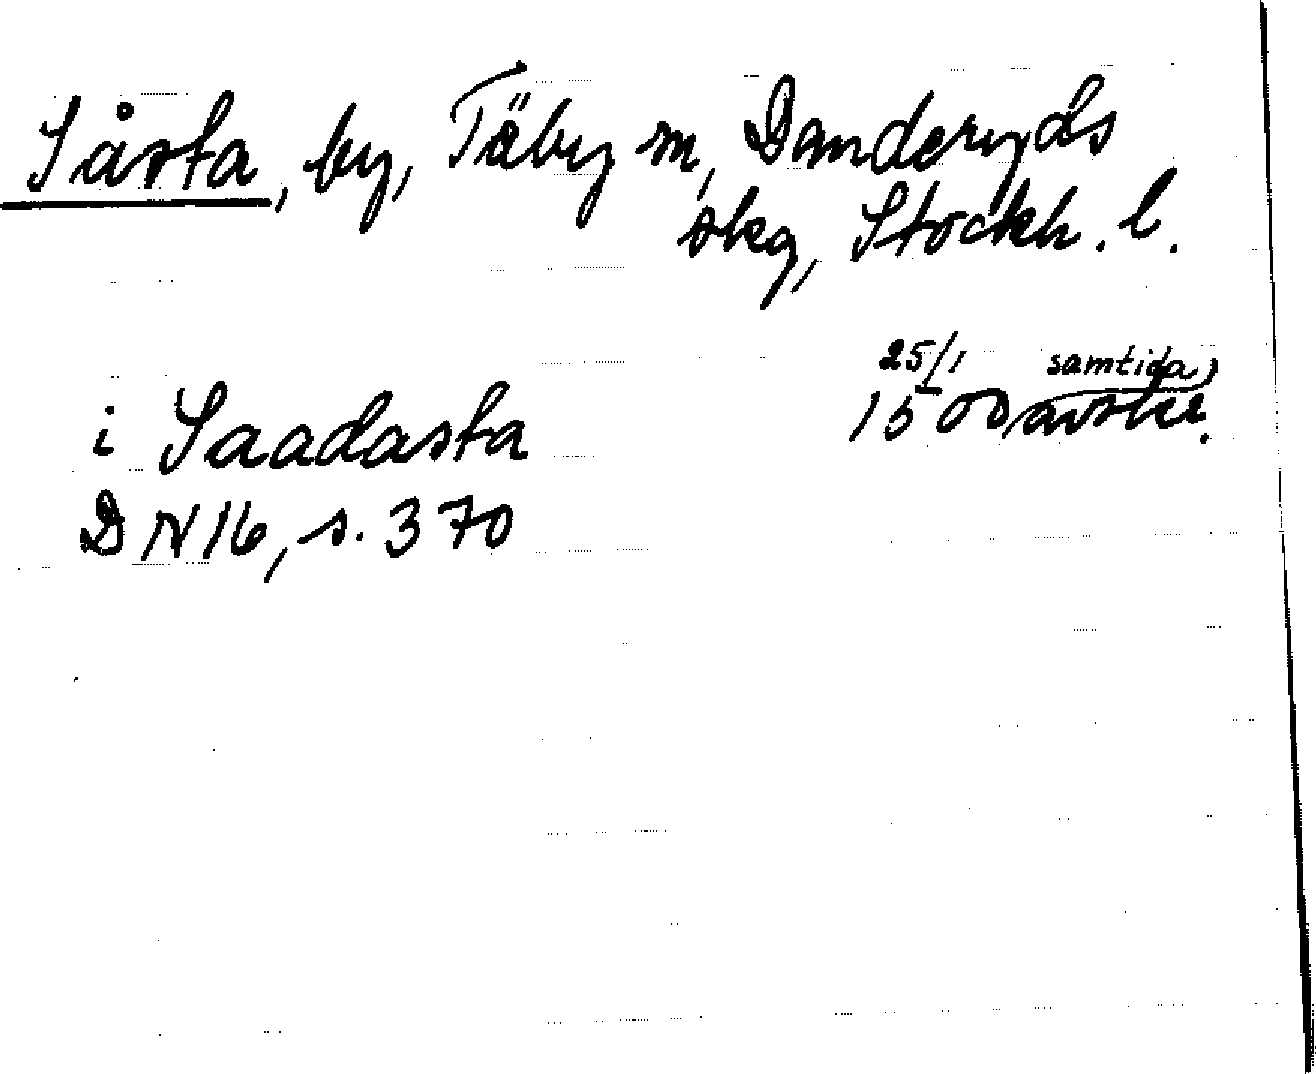 Såsta, by, Täby sn, Danderyds
skg, Stockh. l.
25/1 samtida
i Saadasta 1500 avskr.
DN 16, s. 370